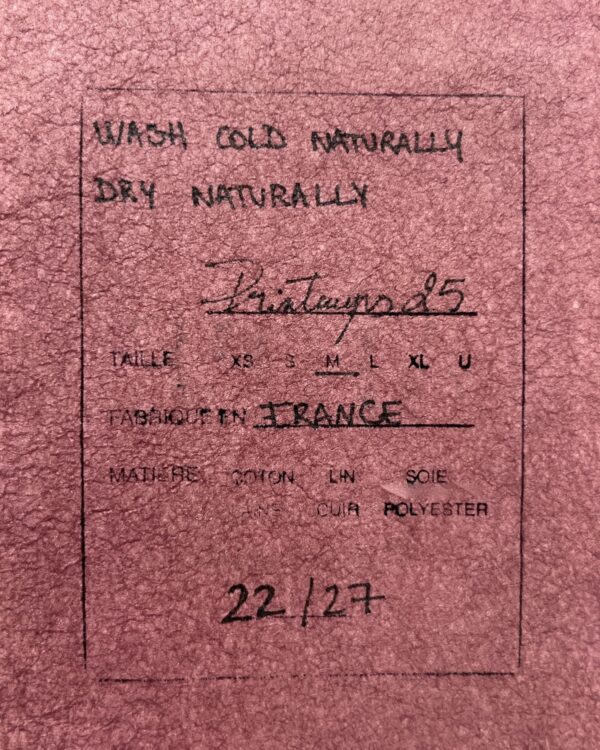 WASH COLD NATURALLY
DRY NATURALLY
Printemps 25
TAILLE XS S M L XL U
FABRIQUE EN FRANCE
MATIÈRE COTON LIN SOIE
CUIR POLYESTER
22/27